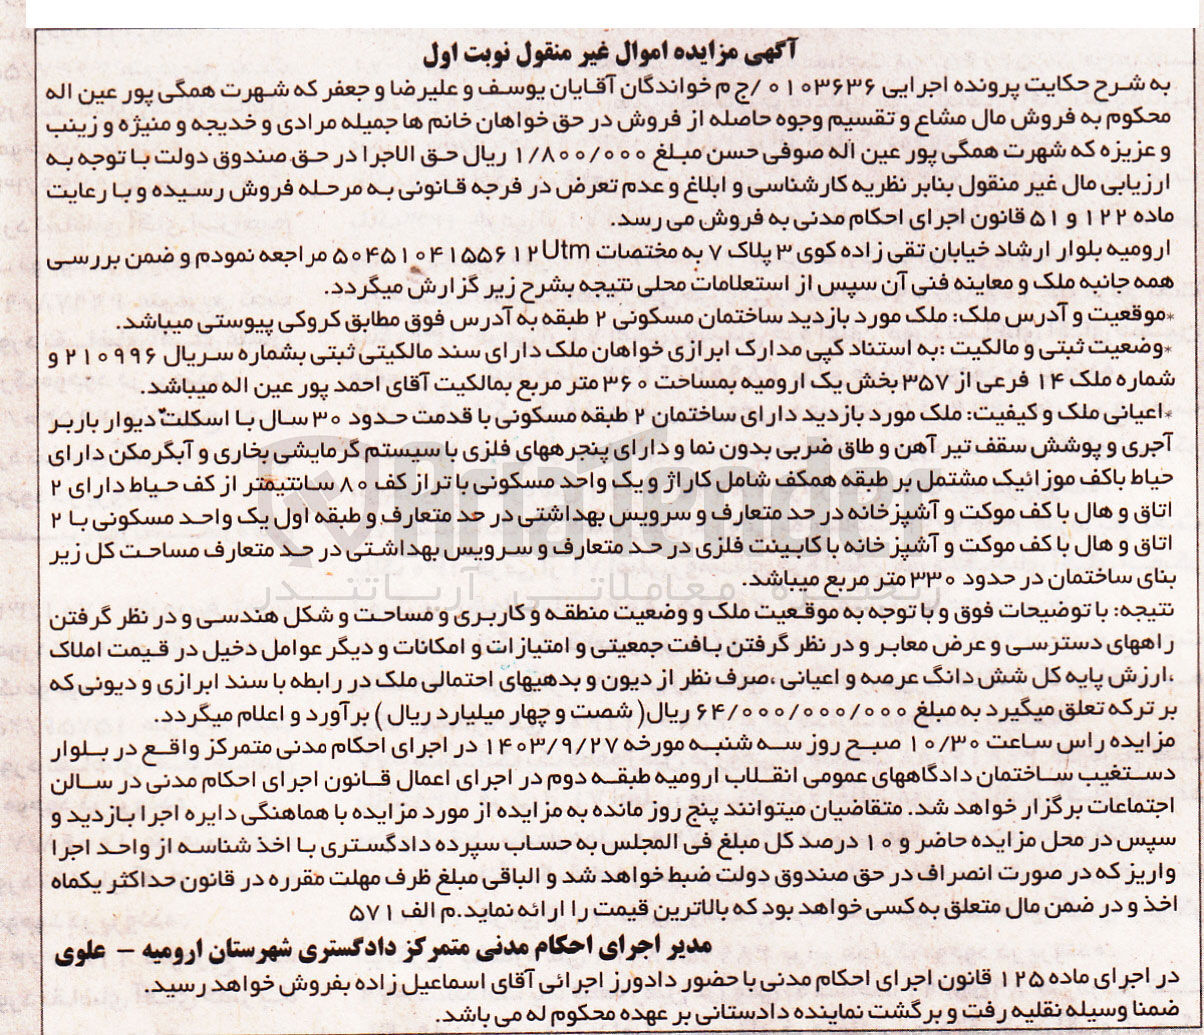 آگهی مزایده اموال غیر منقول نوبت اول
به شرح حکایت پرونده اجرایی ۰۱۰۳۶۳۶ /ج م خواندگان آقایان یوسف و علیرضا و جعفر که شهرت همگی پور عین اله
محکوم به فروش مال مشاع و تقسیم وجوه حاصله از فروش در حق خواهان خانم ها جمیله مرادی و خدیجه و منیژه و زینب
و عزیزه که شهرت همگی پور عین اله صوفی حسن مبلغ ۱/۸۰۰/۰۰۰ ریال حق الاجرا در حق صندوق دولت با توجه به
ارزیابی مال غیر منقول بنابر نظریه کارشناسی و ابلاغ و عدم تعرض در فرجه قانونی به مرحله فروش رسیده و با رعایت
ماده ۱۲۲ و ۵۱ قانون اجرای احکام مدنی به فروش می رسد.
ارومیه بلوار ارشاد خیابان تقی زاده کوی ۳ پلاک ۷ به مختصات Utm ۵۰۴۵۱۰۴۱۵۵۶۱۲ مراجعه نمودم و ضمن بررسی
همه جانبه ملک و معاینه فنی آن سپس از استعلامات محلی نتیجه بشرح زیر گزارش میگردد.
*موقعیت و آدرس ملک: ملک مورد بازدید ساختمان مسکونی ۲ طبقه به آدرس فوق مطابق کروکی پیوستی میباشد.
*وضعیت ثبتی و مالکیت :به استناد کپی مدارک ابرازی خواهان ملک دارای سند مالکیتی ثبتی بشماره سریال ۲۱۰۹۹۶ و
شماره ملک ۱۴ فرعی از ۳۵۷ بخش یک ارومیه بمساحت ۳۶۰ متر مربع بمالکیت آقای احمد پور عین اله میباشد.
*اعیانی ملک و کیفیت: ملک مورد بازدید دارای ساختمان ۲ طبقه مسکونی با قدمت حدود ۳۰ سال با اسکلت دیوار باربر
آجری و پوشش سقف تیر آهن و طاق ضربی بدون نما و دارای پنجرههای فلزی با سیستم گرمایشی بخاری و آبگرمکن دارای
حیاط باکف موزائیک مشتمل بر طبقه همکف شامل کاراژ و یک واحد مسکونی با تراز کف ۸۰ سانتیمتر از کف حیاط دارای ۲
اتاق و هال با کف موکت و آشپزخانه در حد متعارف و سرویس بهداشتی در حد متعارف و طبقه اول یک واحد مسکونی با ۲
اتاق و هال با کف موکت و آشپز خانه با کابینت فلزی در حد متعارف و سرویس بهداشتی در حد متعارف مساحت کل زیر
بنای ساختمان در حدود ۳۳۰ متر مربع میباشد.
نتیجه: با توضیحات فوق و با توجه به موقعیت ملک و وضعیت منطقه و کاربری و مساحت و شکل هندسی و در نظر گرفتن
راههای دسترسی و عرض معابر و در نظر گرفتن بافت جمعیتی و امتیازات و امکانات و دیگر عوامل دخیل در قیمت املاک
،ارزش پایه کل شش دانگ عرصه و اعیانی ،صرف نظر از دیون و بدهیهای احتمالی ملک در رابطه با سند ابرازی و دیونی که
بر ترکه تعلق میگیرد به مبلغ ۶۴/۰۰۰/۰۰۰/۰۰۰ ریال( شصت و چهار میلیارد ریال ) برآورد و اعلام میگردد.
مزایده راس ساعت ۱۰/۳۰ صبح روز سه شنبه مورخه ۱۴۰۳/۹/۲۷ در اجرای احکام مدنی متمرکز واقع در بلوار
دستغیب ساختمان دادگاههای عمومی انقلاب ارومیه طبقه دوم در اجرای اعمال قانون اجرای احکام مدنی در سالن
اجتماعات برگزار خواهد شد. متقاضیان میتوانند پنج روز مانده به مزایده از مورد مزایده با هماهنگی دایره اجرا بازدید و
سپس در محل مزایده حاضر و ۱۰ درصد کل مبلغ فی المجلس به حساب سپرده دادگستری با اخذ شناسه از واحد اجرا
واریز که در صورت انصراف در حق صندوق دولت ضبط خواهد شد و الباقی مبلغ ظرف مهلت مقرره در قانون حداکثر یکماه
اخذ و در ضمن مال متعلق به کسی خواهد بود که بالاترین قیمت را ارائه نماید.م الف ۵۷۱
مدیر اجرای احکام مدنی متمرکز دادگستری شهرستان ارومیه – علوی
در اجرای ماده ۱۲۵ قانون اجرای احکام مدنی با حضور دادورز اجرائی آقای اسماعیل زاده بفروش خواهد رسید.
ضمنا وسیله نقلیه رفت و برگشت نماینده دادستانی بر عهده محکوم له می باشد.
AriaTender
زنجیره معاملاتی آریاتندر